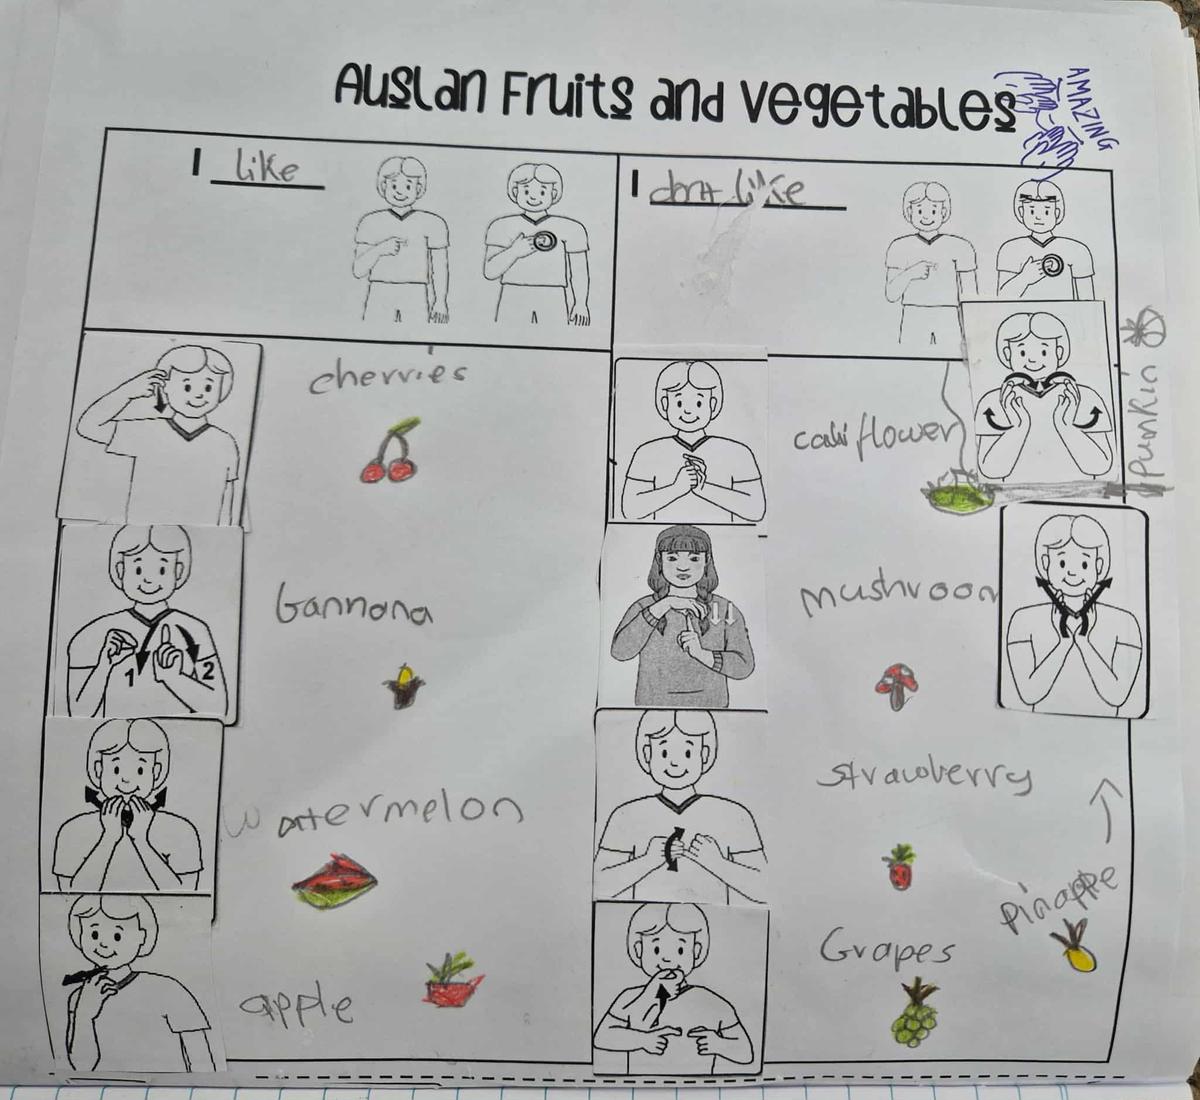 Auslan Fruits and Vegetables
AMAZING
I like
I dont like
cherries
califlower
punkin
bannana
1 2
mushroom
watermelon
strawberry
pinappe
apple
Grapes